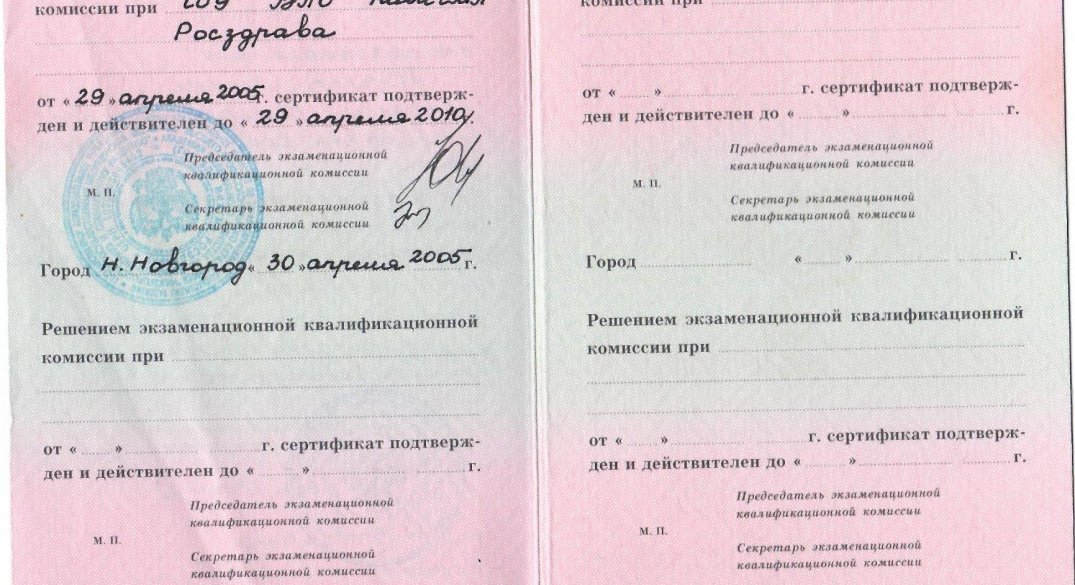 комиссии при ГОУ ВПО
Росздрава
от « 29 » апреля 2005 г. сертификат подтверж-
ден и действителен до « 29 » апреля 2010 г.
Председатель экзаменационной
квалификационной комиссии
М. П.
Секретарь экзаменационной
квалификационной комиссии
Город Н. Новгород « 30 » апреля 2005 г.
Решением экзаменационной квалификационной
комиссии при
от « » г. сертификат подтверж-
ден и действителен до « » г.
Председатель экзаменационной
квалификационной комиссии
М. П.
Секретарь экзаменационной
квалификационной комиссии
комиссии при
от « » г. сертификат подтверж-
ден и действителен до « » г.
Председатель экзаменационной
квалификационной комиссии
М. П.
Секретарь экзаменационной
квалификационной комиссии
Город « » г.
Решением экзаменационной квалификационной
комиссии при
от « » г. сертификат подтверж-
ден и действителен до « » г.
Председатель экзаменационной
квалификационной комиссии
М. П.
Секретарь экзаменационной
квалификационной комиссии